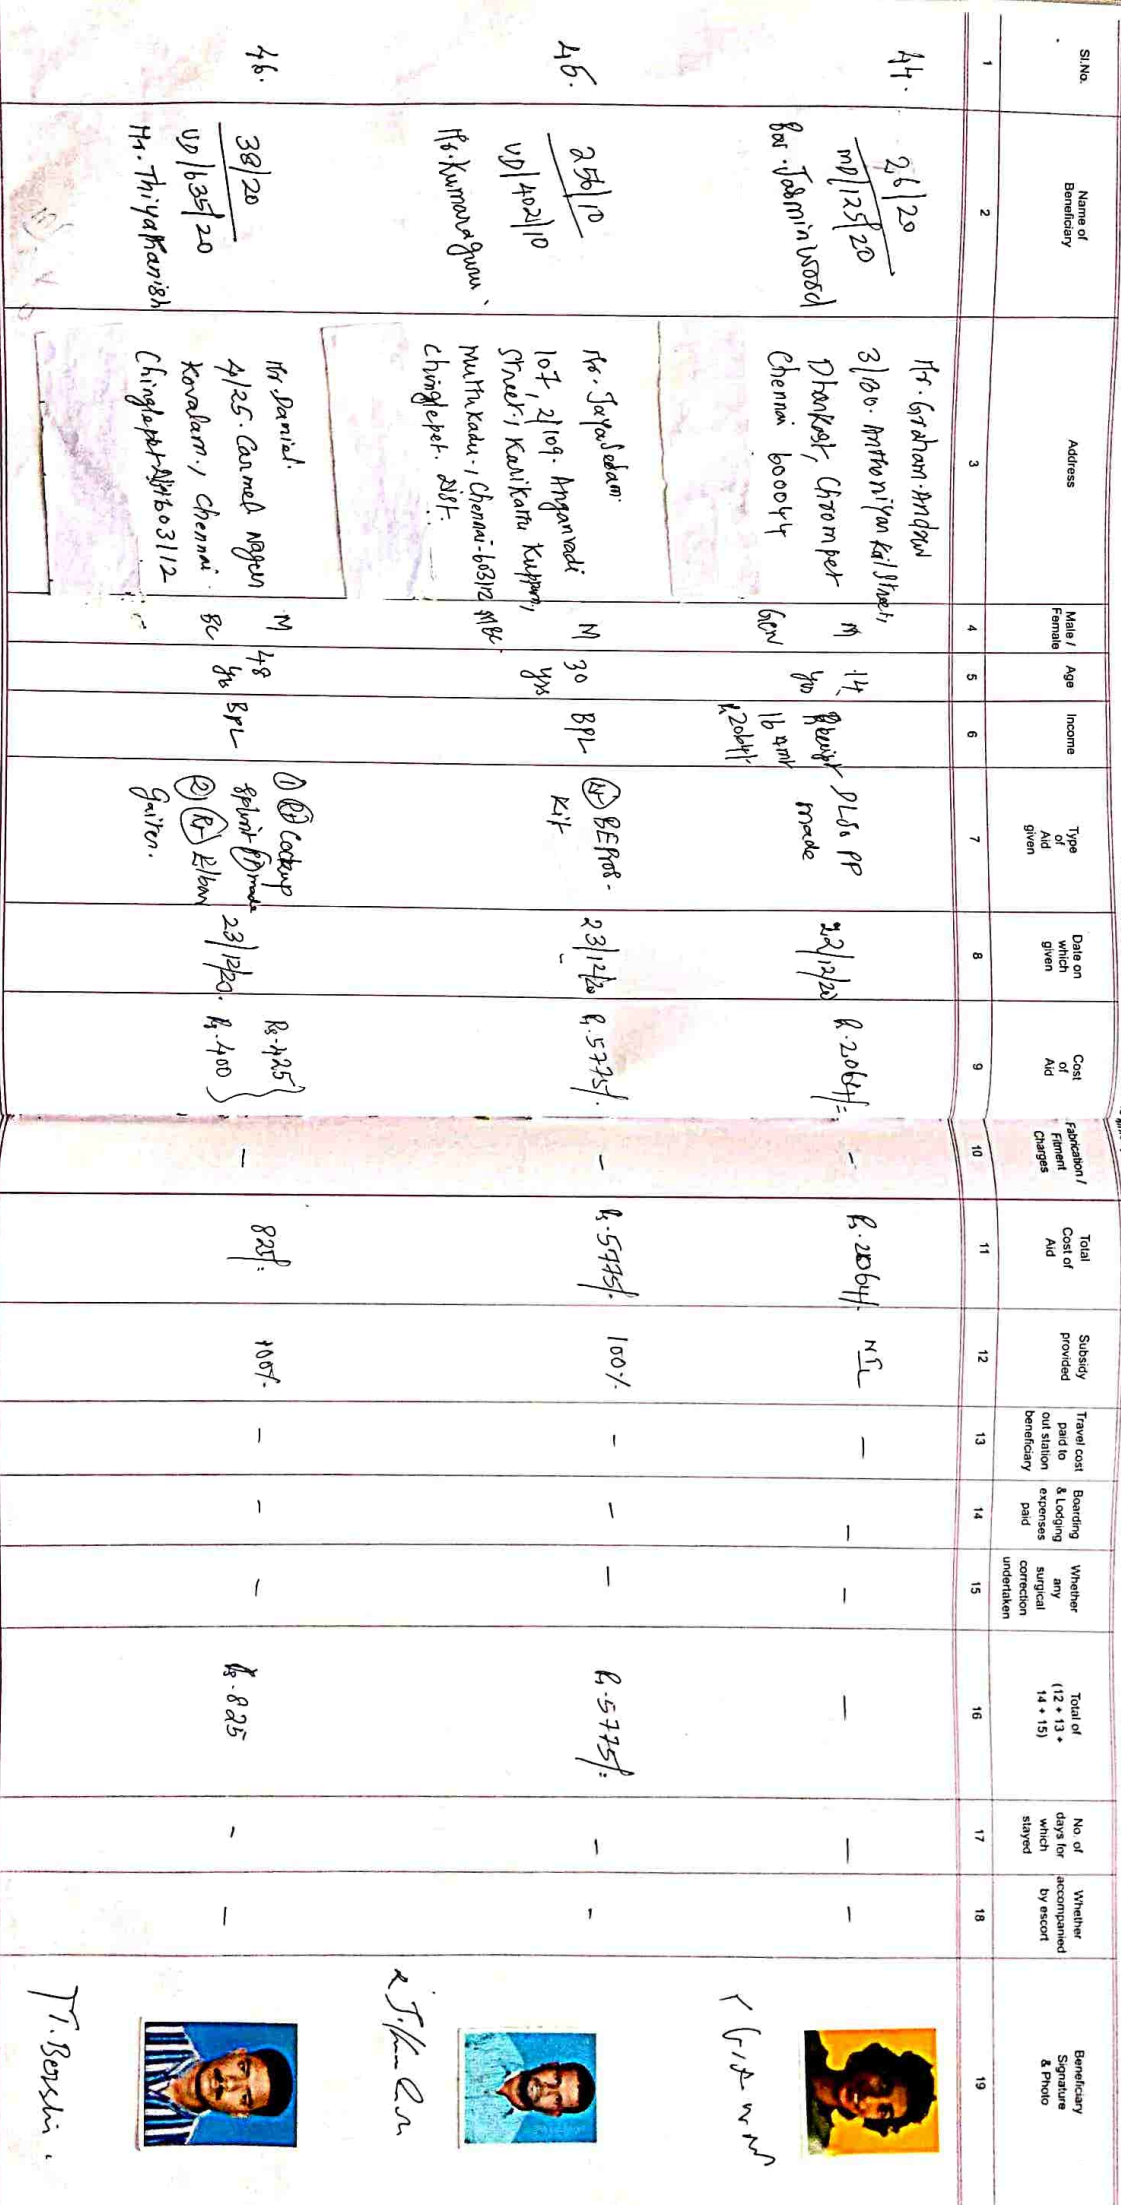 Sl.No.
Name of
Beneficiary
Address
Male /
Female
Age
Income
Type
of
Aid
given
Date on
which
given
Cost
of
Aid
Fabrication /
Fitment
Charges
Total
Cost of
Aid
Subsidy
provided
Travel cost
paid to
out station
beneficiary
Boarding
& Lodging
expenses
paid
Whether
any
surgical
correction
undertaken
Total of
(12 + 13 +
14 + 15)
No. of
days for
which
stayed
Whether
accompanied
by escort
Beneficiary
Signature
& Photo
1 2 3 4 5 6 7 8 9 10 11 12 13 14 15 16 17 18 19
44.
26/20
MD/125/20
Jasminwood
Mr. Graham
3/80. Anthoniyar Kail Street,
Chrompet
Chennai 600044
M
Gen
14
yrs
Receipt
16 Amt
made
22/12/20
Rs.2064/=
-
Rs.2064/-
NIL
-
-
-
-
-
-
45.
256/10
UD/402/10
Mr. Kumaraguru
107, 2/109. Anganvadi
Street., Karikattu Kuppam,
Muttukadu., Chennai-603112
Chinglepet. Dist.
M
MBC
30
yrs
BPL
BE Pros-
Kit
23/12/20
Rs.5775/-
-
Rs.5775/-
100%
-
-
-
Rs.5775/=
-
-
46.
38/20
UD/635/20
Mr. Thiyakanish
Mr. Daniel.
4/25. Carmel Nagar
Kovalam., Chennai.
Chinglepet Dist 603112
M
BC
48
yrs
BPL
① Rt Cockup
splint made
② Rt
gaiter.
23/12/20.
Rs.425
Rs.400
-
825/=
100%
-
-
-
Rs.825
-
-
T. Bershi.